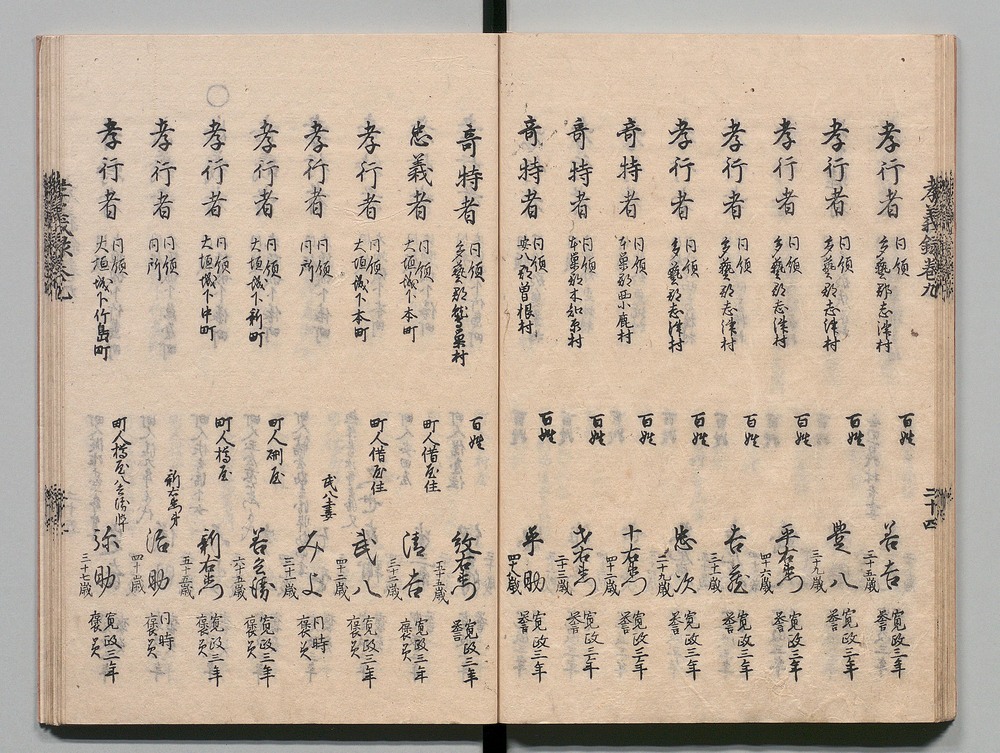 孝義録巻九
二十四
孝行者 同領 多藝郡志津村 百姓 善吉 三十五歳 寛政三年 誉
孝行者 同領 多藝郡志津村 百姓 豊八 三十九歳 寛政三年 誉
孝行者 同領 多藝郡志津村 百姓 平右衛門 四十六歳 寛政三年 誉
孝行者 同領 多藝郡志津村 百姓 吉蔵 三十一歳 寛政三年 誉
孝行者 同領 多藝郡志津村 百姓 忠次 二十九歳 寛政三年 誉
奇特者 同領 本巣郡西小鹿村 百姓 十右衛門 四十二歳 寛政三年 誉
奇特者 同領 本巣郡木知原村 百姓 寛政三年 誉
奇特者 同領 安八郡曽根村 百姓 平助 寛政三年 誉
奇特者 同領 多藝郡鷲巣村 百姓 紋右衛門 五十五歳 寛政三年 誉
忠義者 同領 大垣城下本町 町人借屋住 清吉 三十二歳 寛政三年 褒美
孝行者 同領 大垣城下本町 町人借屋住 武八 四十二歳 寛政三年 褒美
孝行者 同領 同所 武八妻 みよ 三十一歳 同時 褒美
孝行者 同領 大垣城下新町 町人 善兵衛 六十五歳 寛政三年 褒美
孝行者 同領 大垣城下中町 町人樽屋 新右衛門 五十五歳 寛政三年 褒美
孝行者 同領 同所 新右衛門弟 治助 四十歳 同時 褒美
孝行者 同領 大垣城下竹島町 町人樽屋八兵衛悴 弥助 三十七歳 寛政三年 褒美
孝義録巻九